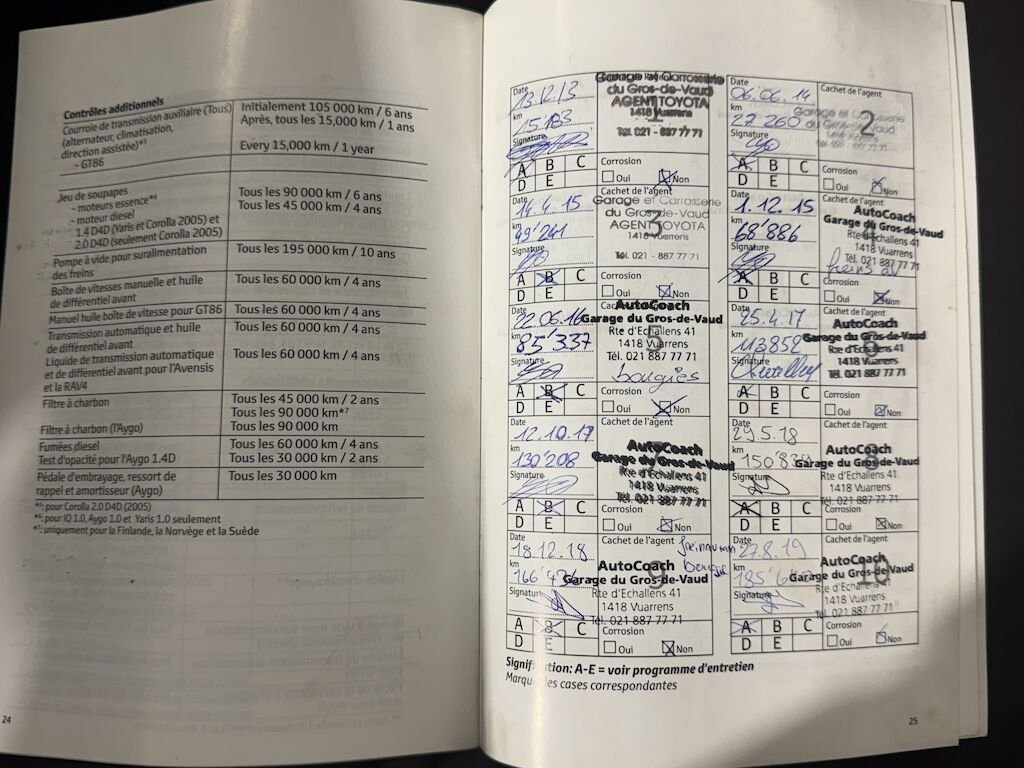 Contrôles additionnels
Courroie de transmission auxiliaire (Tous)
(alternateur, climatisation,
direction assistée)*⁵
- GT86
Initialement 105 000 km / 6 ans
Après, tous les 15,000 km / 1 ans
Every 15,000 km / 1 year
Jeu de soupapes
- moteurs essence*⁶
- moteur diesel
1.4 D4D (Yaris et Corolla 2005) et
2.0 D4D (seulement Corolla 2005)
Tous les 90 000 km / 6 ans
Tous les 45 000 km / 4 ans
Pompe à vide pour suralimentation
des freins
Tous les 195 000 km / 10 ans
Boîte de vitesses manuelle et huile
de différentiel avant
Tous les 60 000 km / 4 ans
Manuel huile boîte de vitesse pour GT86
Tous les 60 000 km / 4 ans
Transmission automatique et huile
de différentiel avant
Tous les 60 000 km / 4 ans
Liquide de transmission automatique
et de différentiel avant pour l'Avensis
et la RAV4
Tous les 60 000 km / 4 ans
Filtre à charbon
Tous les 45 000 km / 2 ans
Tous les 90 000 km*⁷
Filtre à charbon (l'Aygo)
Tous les 90 000 km
Fumées diesel
Tous les 60 000 km / 4 ans
Test d'opacité pour l'Aygo 1.4D
Tous les 30 000 km / 2 ans
Pédale d'embrayage, ressort de
rappel et amortisseur (Aygo)
Tous les 30 000 km
*⁵: pour Corolla 2.0 D4D (2005)
*⁶: pour iQ 1.0, Aygo 1.0 et Yaris 1.0 seulement
*⁷: uniquement pour la Finlande, la Norvège et la Suède
24
Date
13.12.13
km
15183
Signature
Garage et Carrosserie
du Gros-de-Vaud
AGENT TOYOTA
1418 Vuarrens
Tél. 021 - 887 77 71
1
A B C
D E
Corrosion
Oui Non
Date
06.06.14
km
27 260
Signature
Cachet de l'agent
Garage et Carrosserie
du Gros-de-Vaud
2
A B C
D E
Corrosion
Oui Non
Date
14.4.15
km
49'241
Signature
Cachet de l'agent
Garage et Carrosserie
du Gros-de-Vaud
AGENT TOYOTA
1418 Vuarrens
Tél. 021 - 887 77 71
3
A B C
D E
Corrosion
Oui Non
Date
1.12.15
km
68'886
Signature
Cachet de l'agent
AutoCoach
Garage du Gros-de-Vaud
Rte d'Echallens 41
1418 Vuarrens
Tél. 021 887 77 71
freins
A B C
D E
Corrosion
Oui Non
22.06.16
km
85'337
Signature
AutoCoach
Garage du Gros-de-Vaud
Rte d'Echallens 41
1418 Vuarrens
Tél. 021 887 77 71
bougies
A B C
D E
Corrosion
Oui Non
Date
25.4.17
km
113852
Signature
Cachet de l'agent
AutoCoach
Garage du Gros-de-Vaud
Rte d'Echallens 41
1418 Vuarrens
Tél. 021 887 77 71
A B C
D E
Corrosion
Oui Non
Date
12.10.17
km
130'208
Signature
Cachet de l'agent
AutoCoach
Garage du Gros-de-Vaud
Rte d'Echallens 41
1418 Vuarrens
Tél. 021 887 77 71
A B C
D E
Corrosion
Oui Non
Date
29.5.18
km
Signature
Cachet de l'agent
AutoCoach
Garage du Gros-de-Vaud
Rte d'Echallens 41
1418 Vuarrens
Tél. 021 887 77 71
8
A B C
D E
Corrosion
Oui Non
Date
18.12.18
km
Signature
Cachet de l'agent
AutoCoach
Garage du Gros-de-Vaud
Rte d'Echallens 41
1418 Vuarrens
Tél. 021 887 77 71
9
A B C
D E
Corrosion
Oui Non
Date
27.8.19
km
Signature
Cachet de l'agent
AutoCoach
Garage du Gros-de-Vaud
Rte d'Echallens 41
1418 Vuarrens
Tél. 021 887 77 71
A B C
D E
Corrosion
Oui Non
A-E = voir programme d'entretien
les cases correspondantes
25